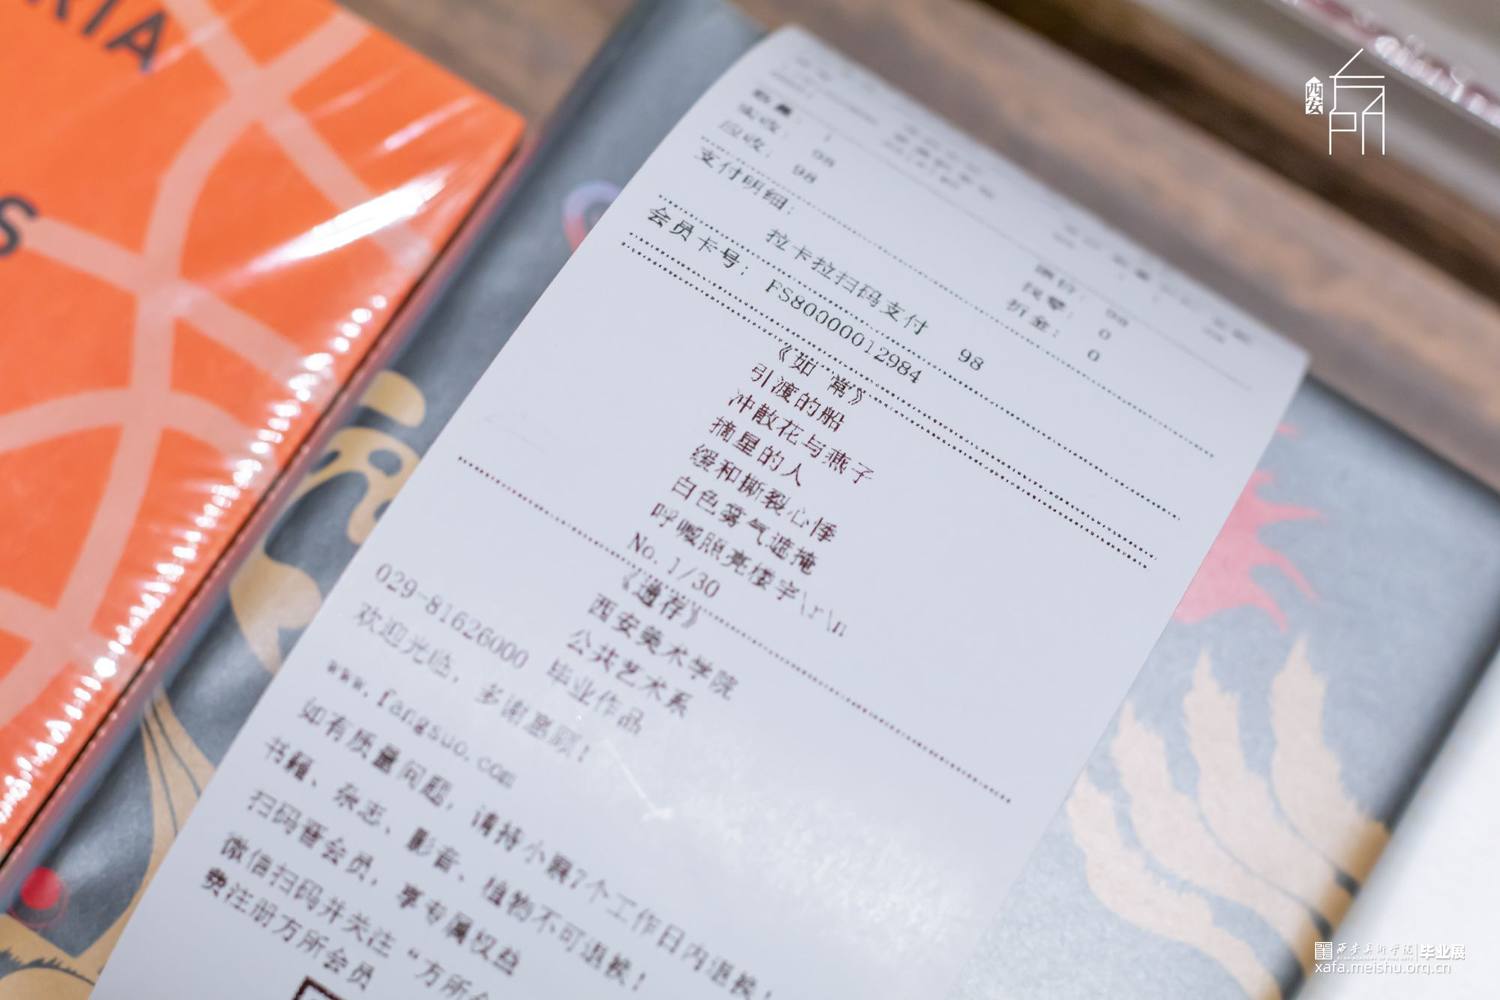 RIA
S
西安
方所
数量： 1
实收： 98
应收： 98
支付明细：
找零： 0
折金： 0
拉卡拉扫码支付 98
会员卡号： FS80000012984
《茹 常》
引渡的船
冲散花与燕子
摘星的人
缓和撕裂心悸
白色雾气遮掩
呼喊照亮楼宇\r\n
No.1/30
《通存》
西安美术学院
公共艺术系
毕业作品
029-81626000
欢迎光临，多谢惠顾！
www.fangsuo.com
如有质量问题，请持小票7个工作日内退换！
书籍、杂志、影音、植物不可退换！
扫码晋会员，享专属权益
微信扫码并关注“方所
费注册方所会员
西安美术学院 毕业展
xafa.meishu.org.cn